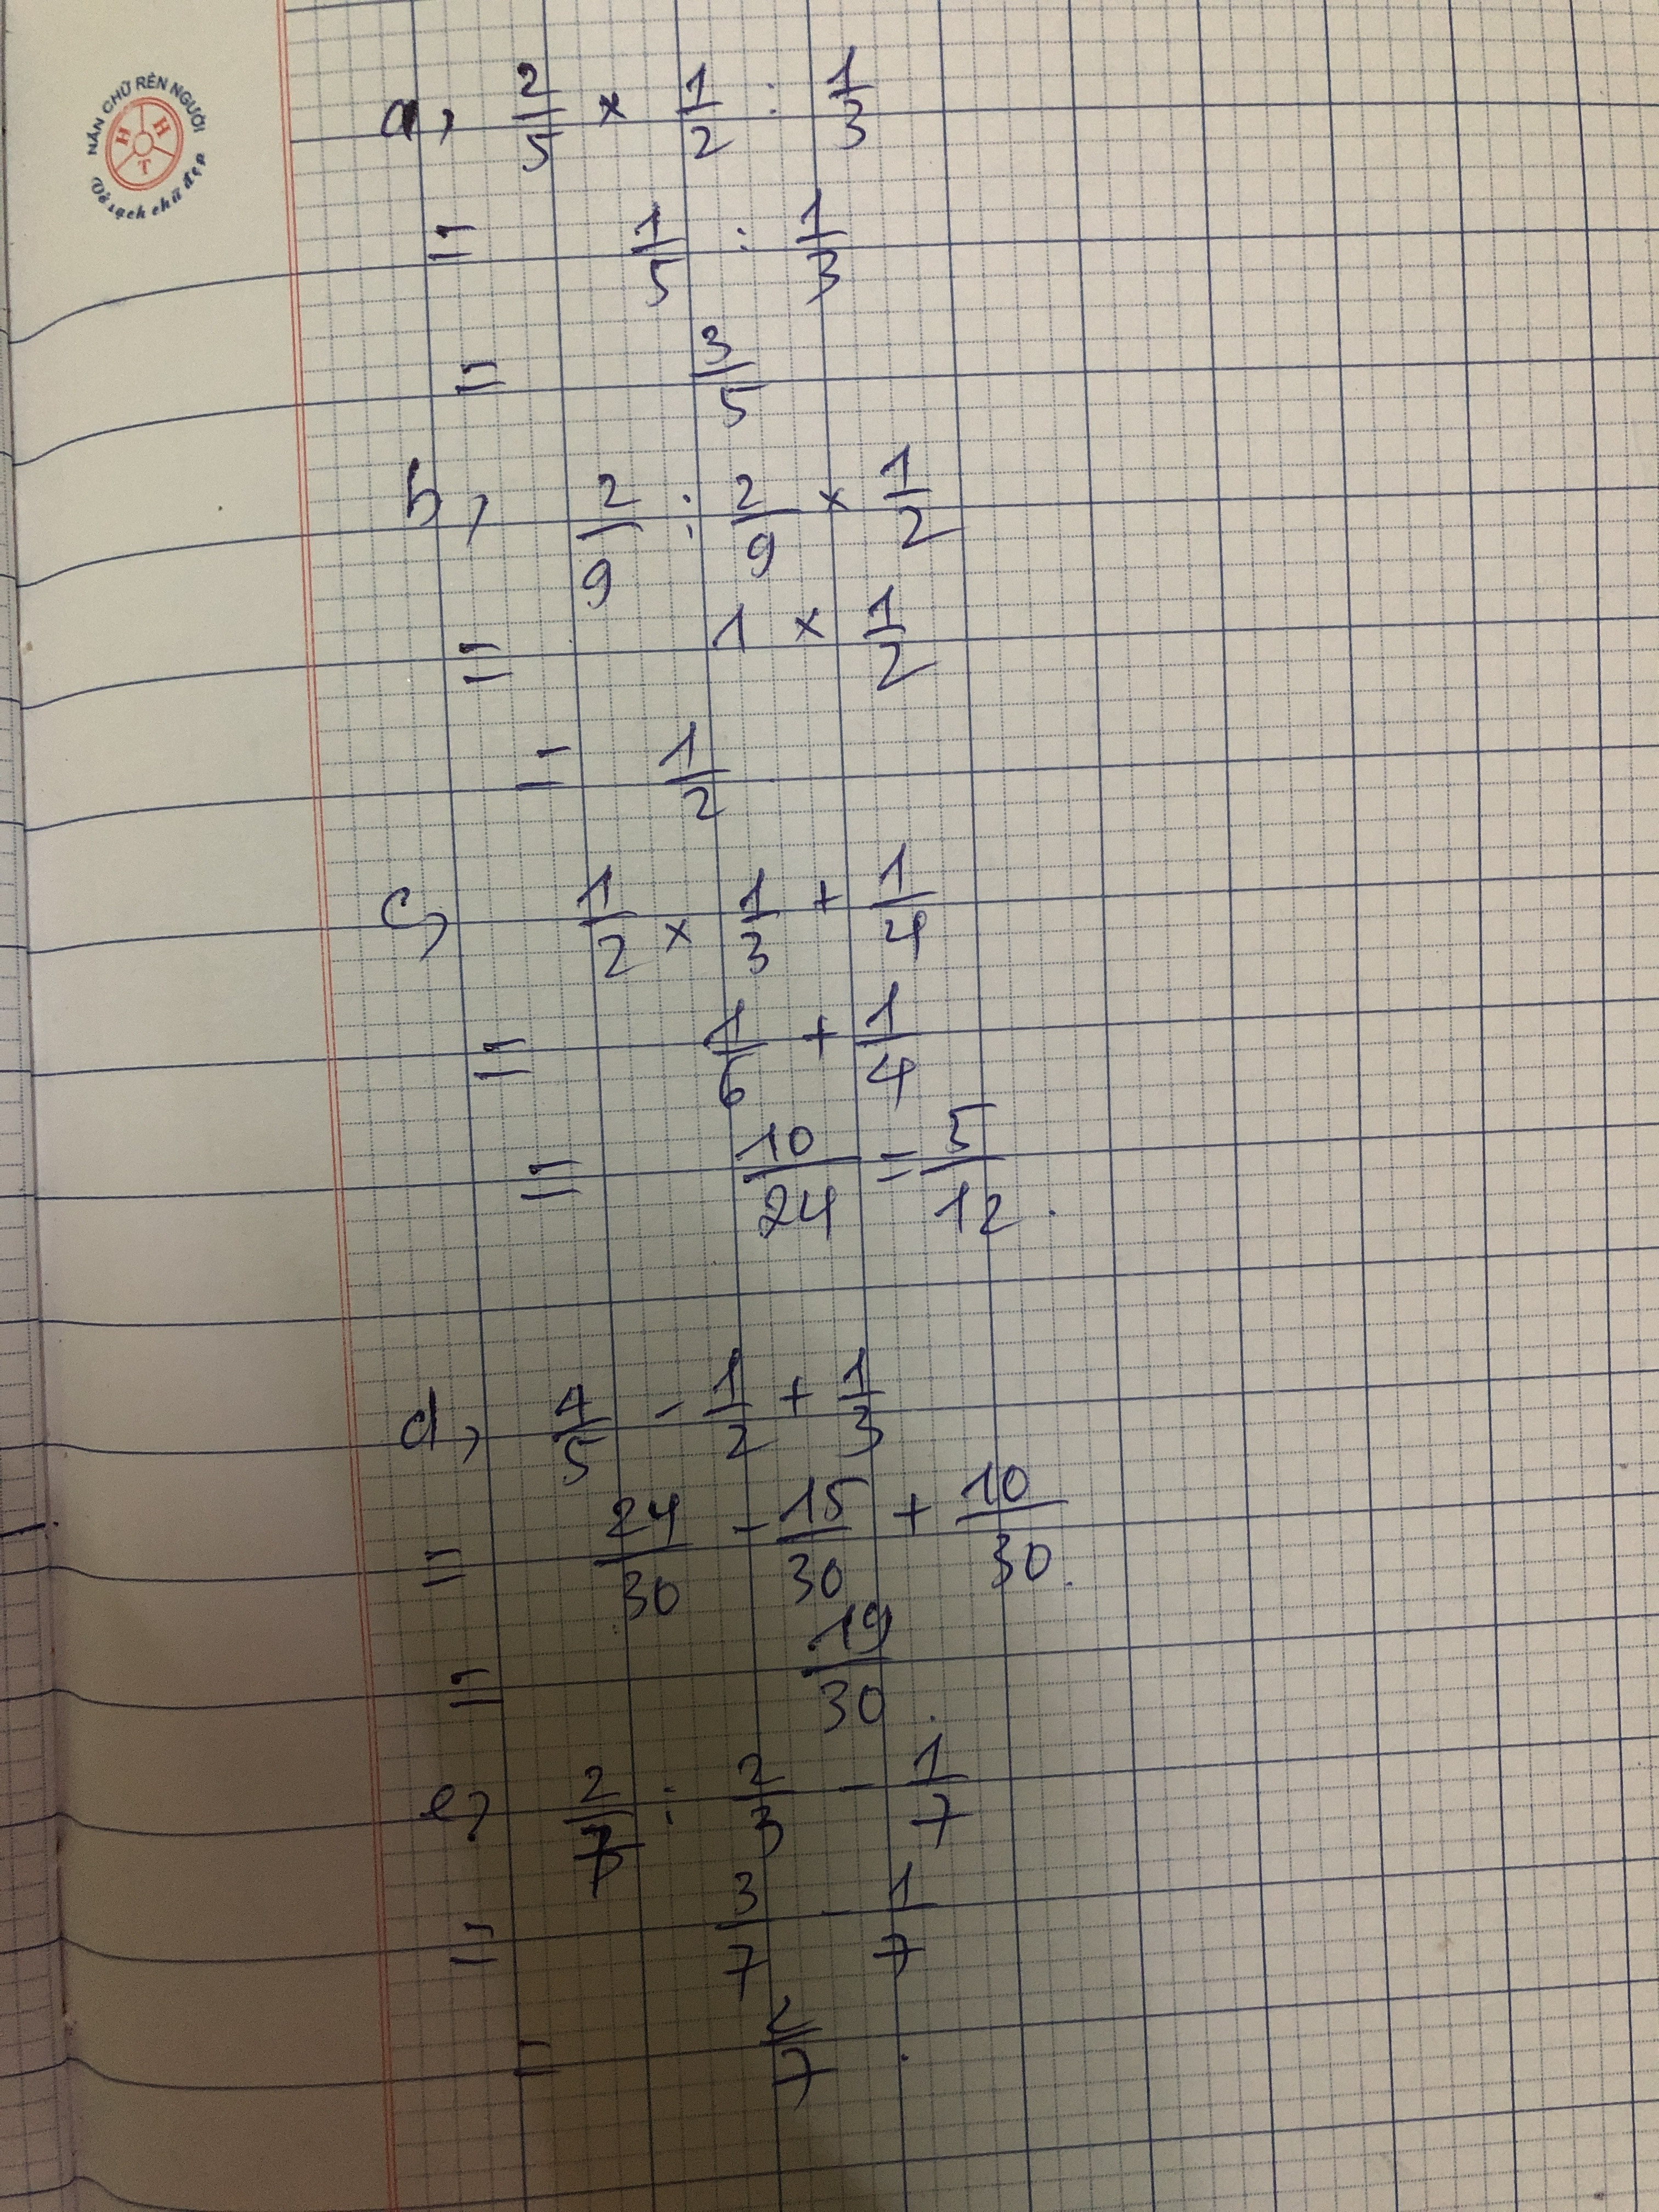 NẮN CHỮ RÈN NGƯỜI
H H T
Vở sạch chữ đẹp
a, 2/5 × 1/2 : 1/3
= 1/5 : 1/3
= 3/5
b, 2/9 : 2/9 × 1/2
= 1 × 1/2
= 1/2
c, 1/2 × 1/3 + 1/4
= 1/6 + 1/4
= 10/24 = 5/12.
d, 4/5 - 1/2 + 1/3
= 24/30 - 15/30 + 10/30.
= 19/30.
e, 2/7 : 2/3 - 1/7
= 3/7 - 1/7
= 2/7.